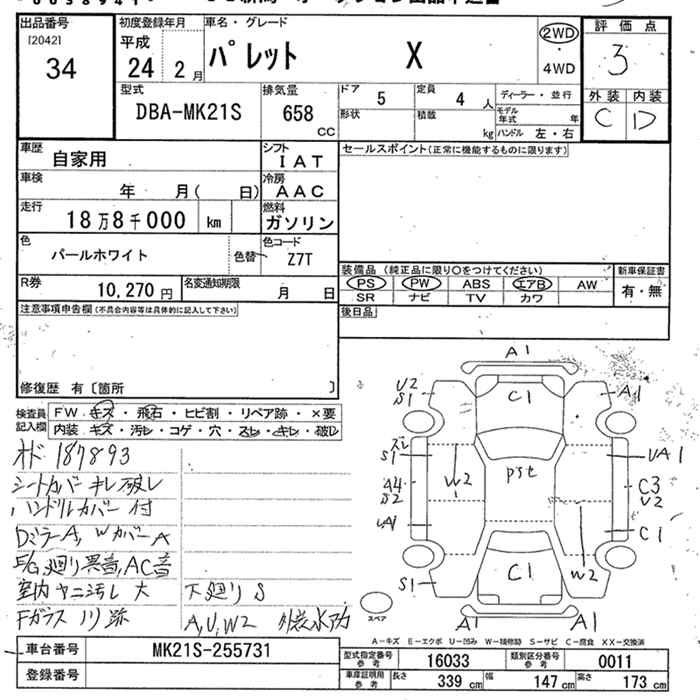 出品番号
[2042]
34
初度登録年月
平成
24 2 月
車名・グレード
パレット X
2WD
・
4WD
評価点
3
外装 内装
C D
型式
DBA-MK21S
排気量
658
CC
ドア
5
定員
4 人
ディーラー・並行
形状
積載
kg
モデル年式 年
ハンドル 左・右
車歴
自家用
シフト
IAT
車検
年 月( 日)
冷房
AAC
走行
18万8千000 km
燃料
ガソリン
色
パールホワイト
色替
色コード
Z7T
R券
10,270 円
名変通知期限
月 日
セールスポイント(正常に機能するものに限ります)
装備品 (純正品に限り○をつけてください)
新車保証書
PS PW ABS エアB AW
有・無
SR ナビ TV カワ
後日品
注意事項申告欄(不具合内容等は具体的に記入して下さい)
修復歴 有〔箇所 〕
検査員
記入欄
FW キズ・飛石・ヒビ割・リペア跡・×要
内装 キズ・汚レ・コゲ・穴・スレ・キレ・破レ
187893
シートカバー キレ 破レ
ハンドルカバー 付
DミラーA, WカバーA
E/G廻り異音, AC音
室内 ヤニ汚レ 大
下廻り S
Fガラス
A, U, W2
A1
U2
S1
C1
A1
スレ
S1
W2
pst
UA1
A4
S2
C3
U2
UA1
C1
S1
C1
W2
スペア
A1
A1
A-キズ E-エクボ U-凹み W-補修跡 S-サビ C-腐食 XX-交換済
車台番号
MK21S-255731
登録番号
型式指定番号
参考
16033
類別区分番号
参考
0011
車庫証明用
参考
長さ 339 cm
幅 147 cm
高さ 173 cm